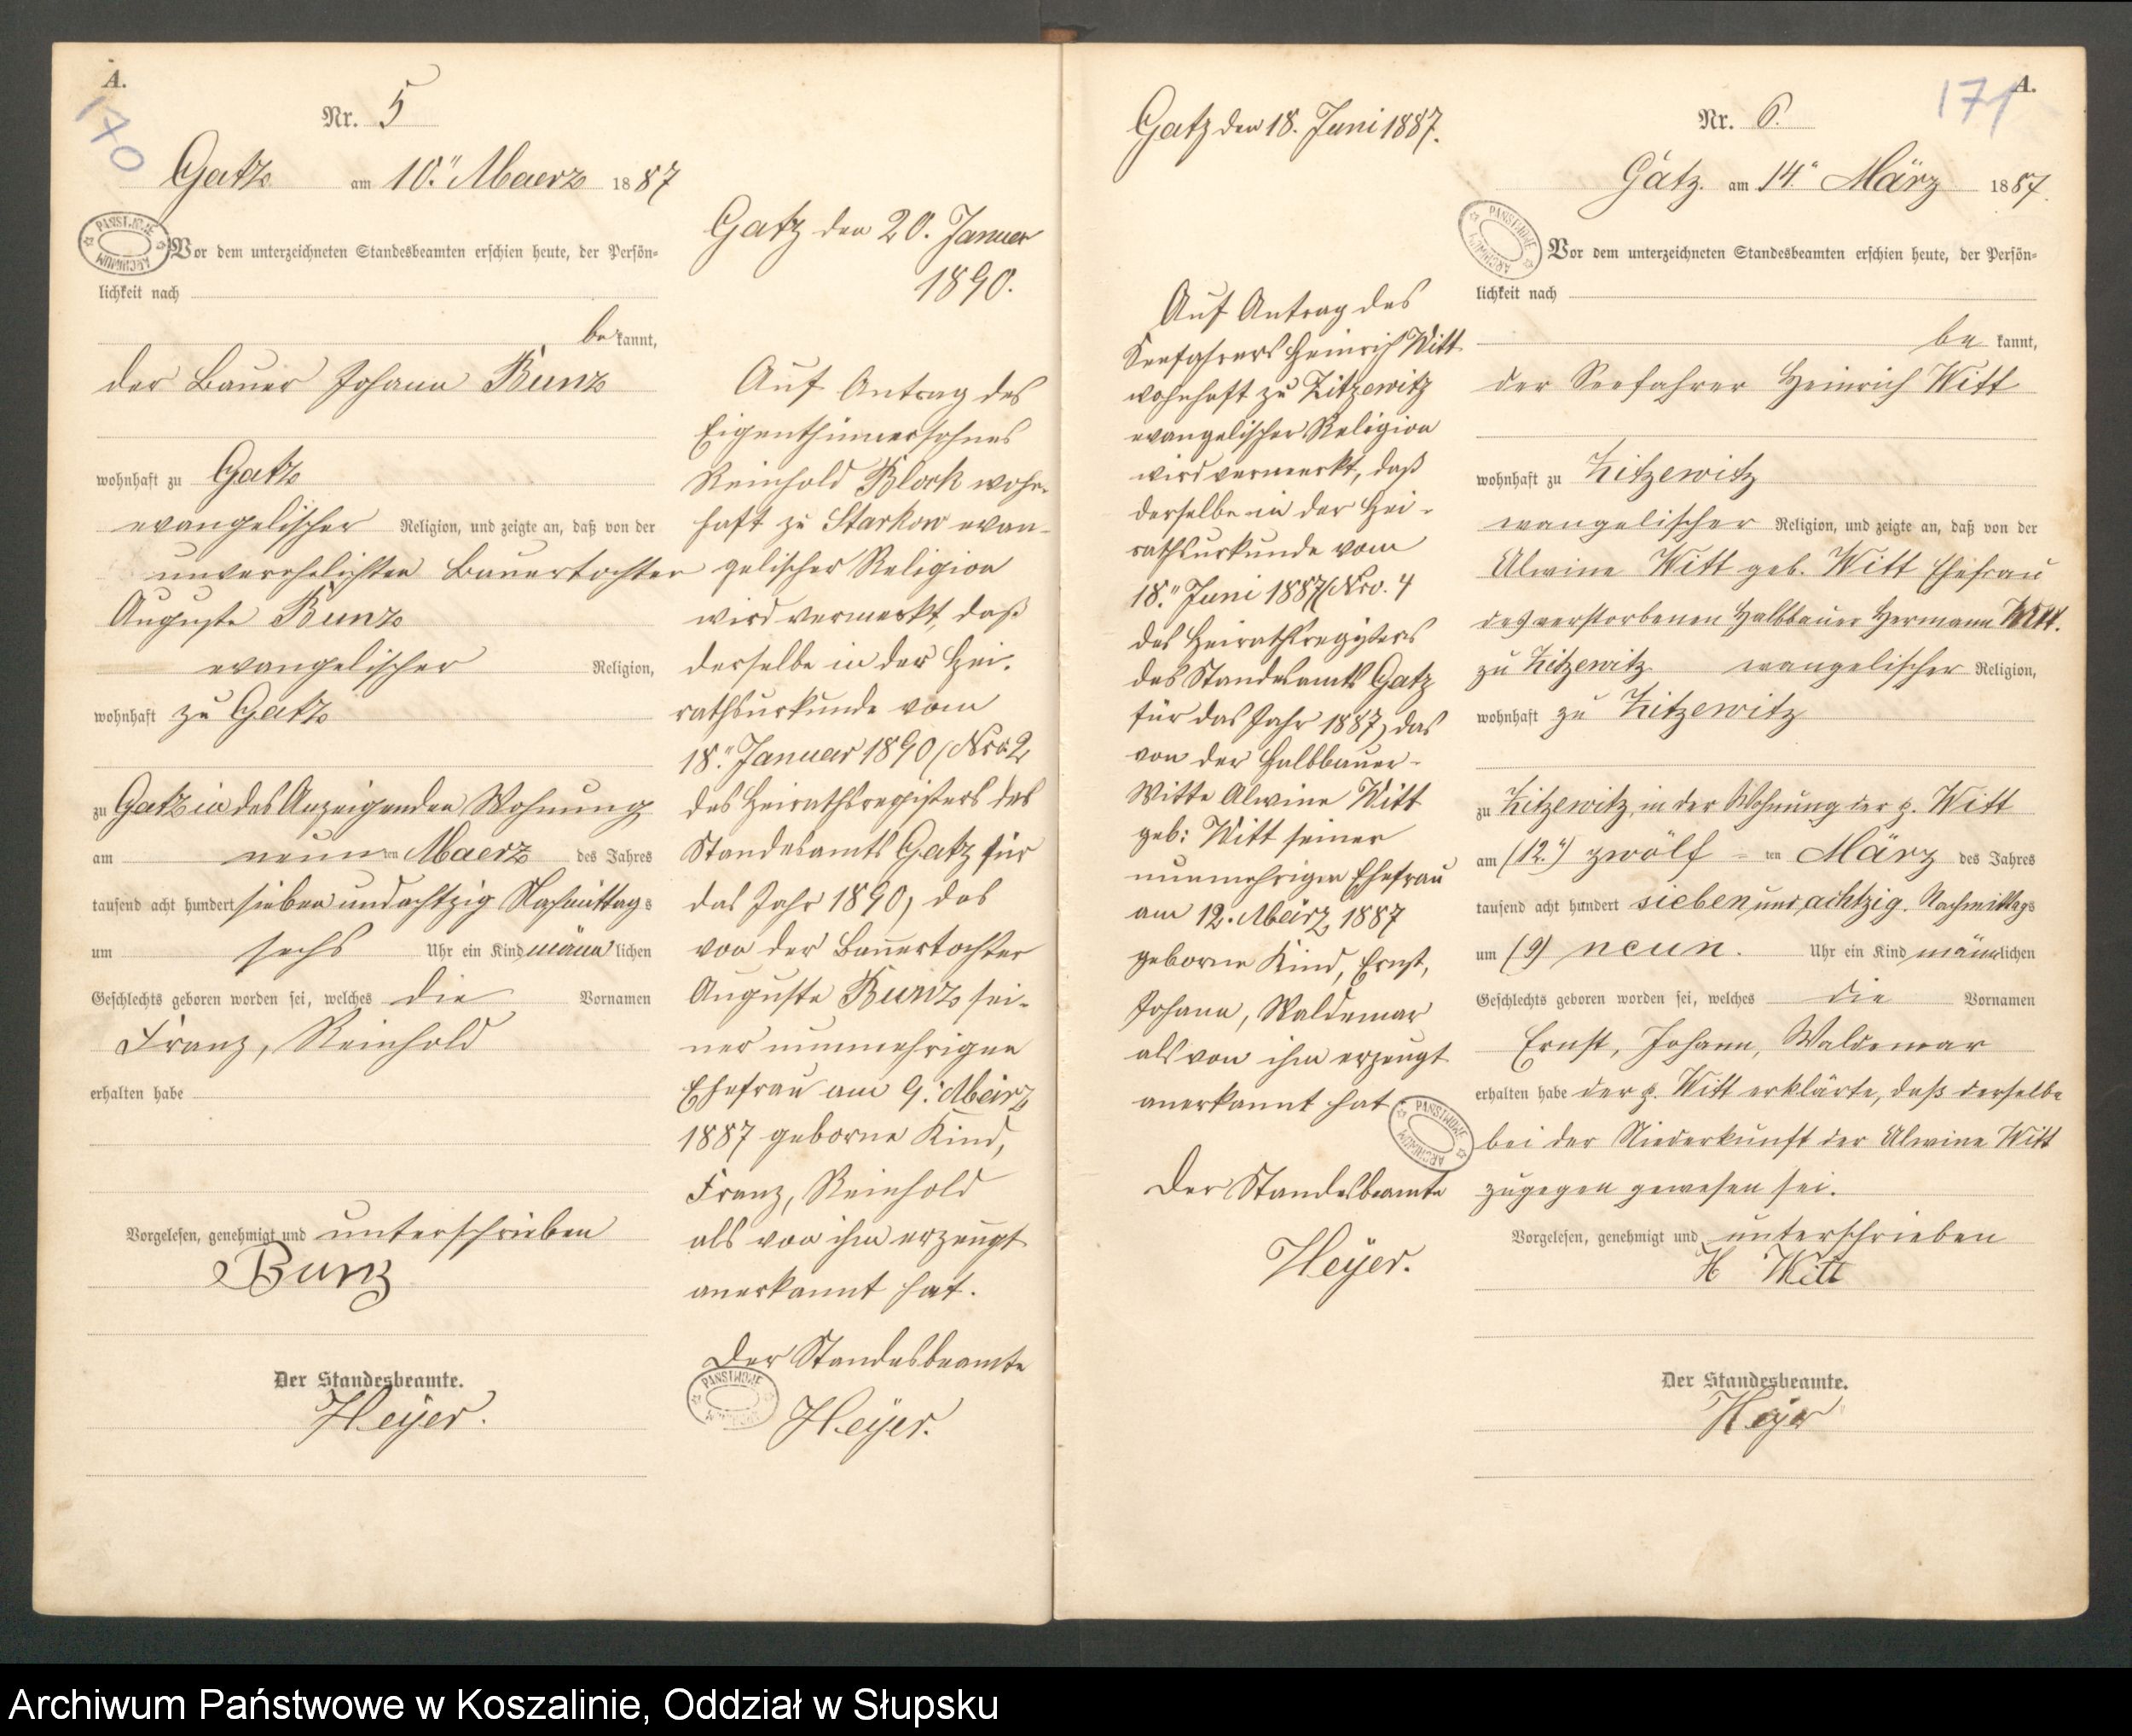 A.
170
Nr. 5
Gatz am 10." Maerz 1887
PAŃSTWOWE ARCHIWUM
Vor dem unterzeichneten Standesbeamten erschien heute, der Persön-
lichkeit nach
be kannt,
der Bauer Johann Bunz
wohnhaft zu Gatz
evangelischer Religion, und zeigte an, daß von der
unverehelichten Bauertochter
Auguste Bunz
evangelischer Religion,
wohnhaft zu Gatz
zu Gatz in des Anzeigenden Wohnung
am neunten Maerz des Jahres
tausend acht hundert sieben und achtzig Nachmittags
um sechs Uhr ein Kind männlichen
Geschlechts geboren worden sei, welches die Vornamen
Franz, Reinhold
erhalten habe
Vorgelesen, genehmigt und unterschrieben
Bunz
Der Standesbeamte.
Heyer.
Gatz den 20. Januar
1890.
Auf Antrag des
Eigenthümersohnes
Reinhold Block wohn-
haft zu Starkow evan-
gelischer Religion
wird vermerkt, daß
derselbe in der Hei-
rathsurkunde vom
18." Januar 1890 (Nro 2
des Heirathsregisters des
Standesamts Gatz für
das Jahr 1890) das
von der Bauertochter
Auguste Bunz sei-
ner nunmehrigen
Ehefrau am 9. März
1887 geborne Kind,
Franz, Reinhold
als von ihm erzeugt
anerkannt hat.
Der Standesbeamte
PAŃSTWOWE ARCHIWUM
Heyer.
Gatz den 18. Juni 1887.
Auf Antrag des
Seefahrers Heinrich Witt
wohnhaft zu Zitzewitz
evangelischer Religion
wird vermerkt, daß
derselbe in der Hei-
rathsurkunde vom
18." Juni 1887 (Nro. 4
des Heirathsregisters
des Standesamts Gatz
für das Jahr 1887) das
von der Halbbauer-
Witte Alwine Witt
geb: Witt seiner
nunmehrigen Ehefrau
am 12. März 1887
geborne Kind, Ernst,
Johann, Waldemar
als von ihm erzeugt
anerkannt hat
PAŃSTWOWE ARCHIWUM
Der Standesbeamte
Heyer.
A.
171
Nr. 6.
Gatz. am 14." März 1887.
PAŃSTWOWE ARCHIWUM
Vor dem unterzeichneten Standesbeamten erschien heute, der Persön-
lichkeit nach
be kannt,
der Seefahrer Heinrich Witt
wohnhaft zu Zitzewitz
evangelischer Religion, und zeigte an, daß von der
Alwine Witt geb. Witt Ehefrau
des verstorbenen Halbbauer Hermann Witt.
zu Zitzewitz evangelischer Religion,
wohnhaft zu Zitzewitz
zu Zitzewitz, in der Wohnung der p. Witt
am (12.") zwölf ten März des Jahres
tausend acht hundert sieben und achtzig. Nachmittags
um (9) neun. Uhr ein Kind männlichen
Geschlechts geboren worden sei, welches die Vornamen
Ernst, Johann, Waldemar
erhalten habe der p. Witt erklärte, daß derselbe
bei der Niederkunft der Alwine Witt
zugegen gewesen sei.
Vorgelesen, genehmigt und unterschrieben
H Witt
Der Standesbeamte.
Heyer
Archiwum Państwowe w Koszalinie, Oddział w Słupsku